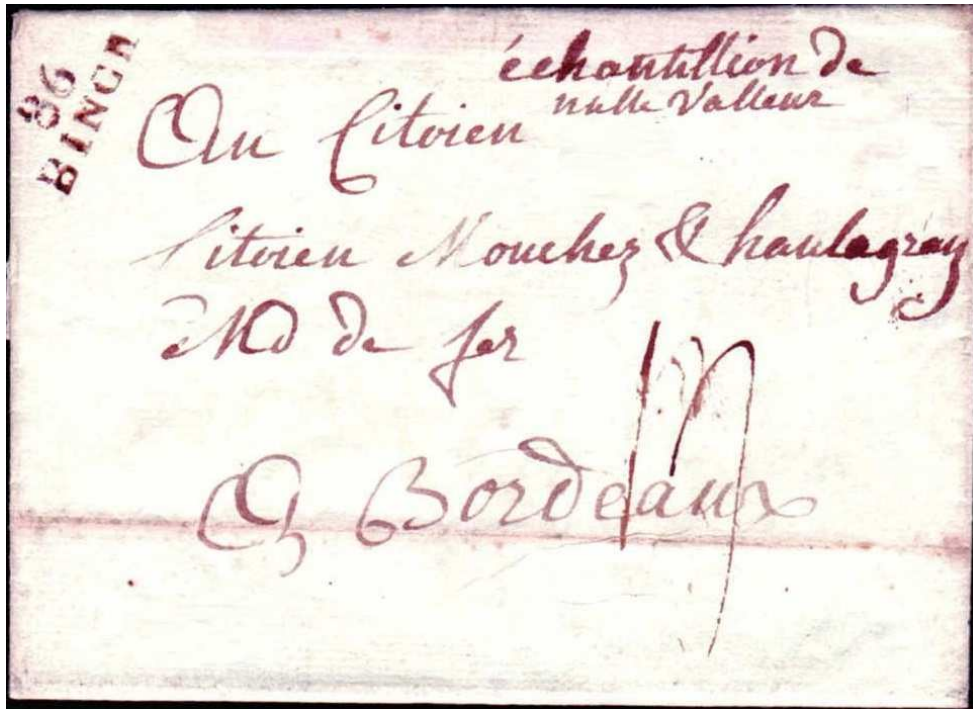 86
BINCH
échantillion de
nulle Valleur
Au Citoien
Citoien Mouchez &
Md de fer
A Bordeaux